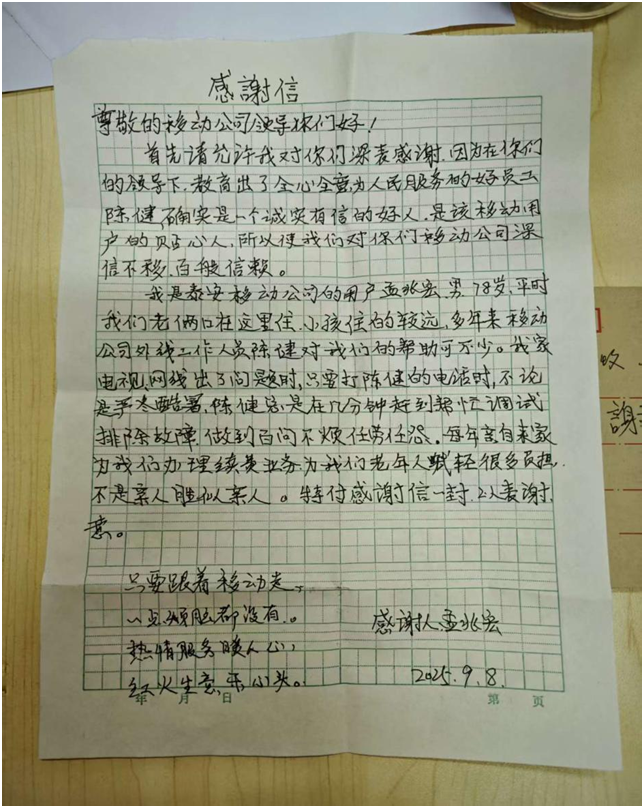 感謝信
尊敬的移动公司领导你们好！
首先请允许我对你们深表感谢.因为在你们
的领导下.教育出了全心全意为人民服务的好员工
陈健,确实是一个诚实有信的好人.是该移动用
户的贴心人,所以使我们对你们移动公司深
信不移.百般信赖。
我是泰安移动公司的用户孟兆宏.男.78岁.平时
我们老俩口在这里住.小孩住的较远,多年来移动
公司外线工作人员陈健对我们的帮助可不少。我家
电视.网线出了问题时,只要打陈健的电话时,不论
是严冬酷署,陈健总是在几分钟赶到帮忙调试
排除故障.做到百问不烦任劳任怨。每年亲自来家
为我们办理续费业务为我们老年人减轻很多负担.
不是亲人胜似亲人。特付感谢信一封.以表谢
意。
只要跟着移动走,
一点烦脑都没有.。
热情服务暖人心,
红火生意乐心头。
感谢人.孟兆宏
2025.9.8.
年 月 日
第 页
謝